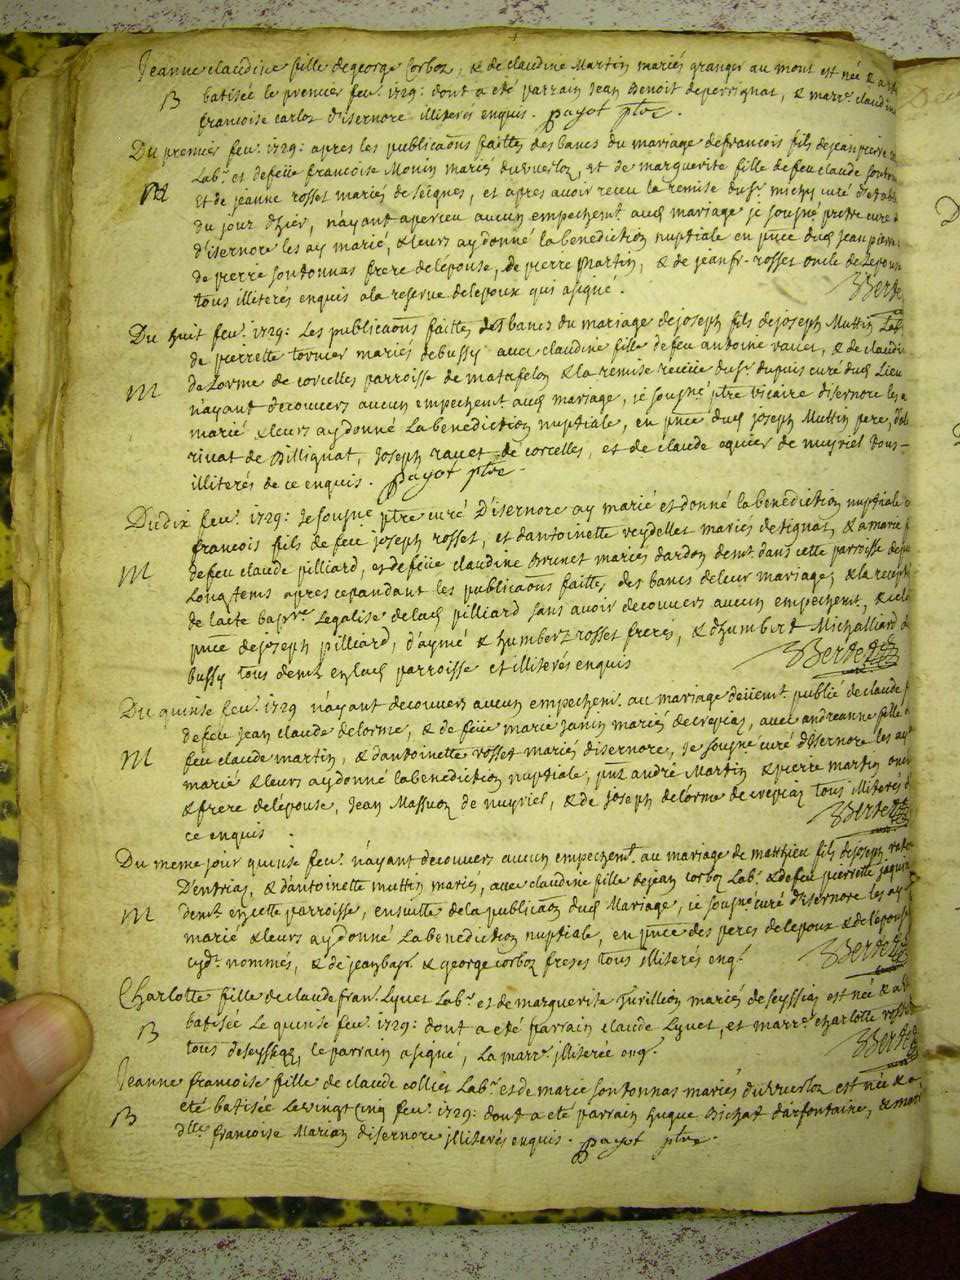 Jeanne claudine fille de george Corboz, & de claudine Martin mariés granger au mont est née & a
B batisée le premier fevr. 1729: dont a été parrain Jean Benoit de perrignat, & marre. claudine
francoise carloz d'isernore illiterés enquis. payot ptre.
Du premier fevr. 1729: apres les publicaons faittes des bancs du mariage de francois fils de jean pierre
Labr. et de feüe francoise Monin mariés du vuerloz, et de marguerite fille de feu claude sontonnas
M Et de jeanne rosset mariés de seignes, et apres avoir receu la remise du sr. michy curé d'
du jour d'hier, n'ayant aperceu aucun empechemt. aud mariage je sousné prtre curé
d'isernore les ay marié, & leurs ay donné la benediction nuptiale en pnce dud jean pierre
de pierre sontonnas frere de lepouse, de pierre Martin, & de jean fr. rosset oncle de lepouse
tous illiterés enquis a la reserve de lepoux qui a signé.
Berdet
Du huit fevr. 1729: Les publicaons faittes des bancs du mariage de joseph fils de joseph Muttin Labr
de pierrette tornier mariés de bussy avec claudine fille de feu antoine ravet, & de claudine
M De Lorme de corcelles parroisse de matafelon & la remise receüe du sr dupuis curé dud Lieu
n'ayant decouvers aucun empechemt. aud mariage, je sousné ptre vicaire disernore les a
marié & leurs ay donné La benediction nuptiale, en pnce dud joseph Muttin pere,
rivat de Billignat, Joseph ravet de corcelles, et de claude equier de nuyriel tous
illiterés de ce enquis. payot ptre.
Du dix fevr. 1729: Je sousné ptre curé D'isernore ay marié et donné la benediction nuptiale a
francois fils de feu joseph rosset, et d'antoinette veydellet mariés de tignat, & a marie f
M de feu claude pilliard, et de feüe claudine Brunet mariés dardon demt. dans cette parroisse depuis
Longtems apres cependant les publicaons faittes des bancs de leur mariage, & la recep
de lacte bapre. Legalise de lad pilliard sans avoir decouvers aucun empechemt, &
pnce de joseph pilliard, d'aymé & humbert rosset freres, & d'humbert Michalliard de
bussy tous demts en lad parroisse et illiterés enquis
Berdet
Du quinse fevr. 1729 n'ayant decouvers aucun empechemt. au mariage deüemt. publié de claude f
de feu Jean claude delorme, & de feüe marie janin mariés de crepiaz, avec andreanne fille de
M feu claude martin, & d'antoinette rosset mariés disernore, Je sousné curé d'Isernore les ay
marié & leurs ay donné la benediction nuptiale, pnt andré Martin & pierre martin oncle
& frere de lepouse, Jean Massuoz de nuyriel, & de joseph delorme de crepiaz tous illiterés d
ce enquis.
Berdet
Du meme jour quinse fevr. n'ayant decouvers aucun empechemt. au mariage de matthieu fils de joseph
D'entriaz, & d'antoinette muttin mariés, avec claudine fille de jean corboz Labr. & de feu pierrette
M demts en cette parroisse, ensuitte de la publicaon dud Mariage, je sousné curé d'Isernore les ay
marié & leurs ay donné La benediction nuptiale, en pnce des peres de lepoux & de lepouse
cydt. nommés, & de jean bapt. & george corboz freres tous illiterés enqt.
Berdet
Charlotte fille de claude fran. Lyvet Labr. et de marguerite Turillion mariés de seyssiaz est née & a
B batisée Le quinse fevr. 1729: dont a été parrain claude Lyvet, et marre. charlotte
tous de seyssiaz, le parrain a signé, La marre. illiterée enq.
Berdet
Jeanne francoise fille de claude collier Labr. et de marie sontonnas mariés du vuerloz est née & a
B eté batisée Le vingt cinq fevr. 1729: dont a eté parrain hugue Bichat d'arfontaine, & marr
dlle. francoise Marian disernore illiterés enquis. payot ptre.